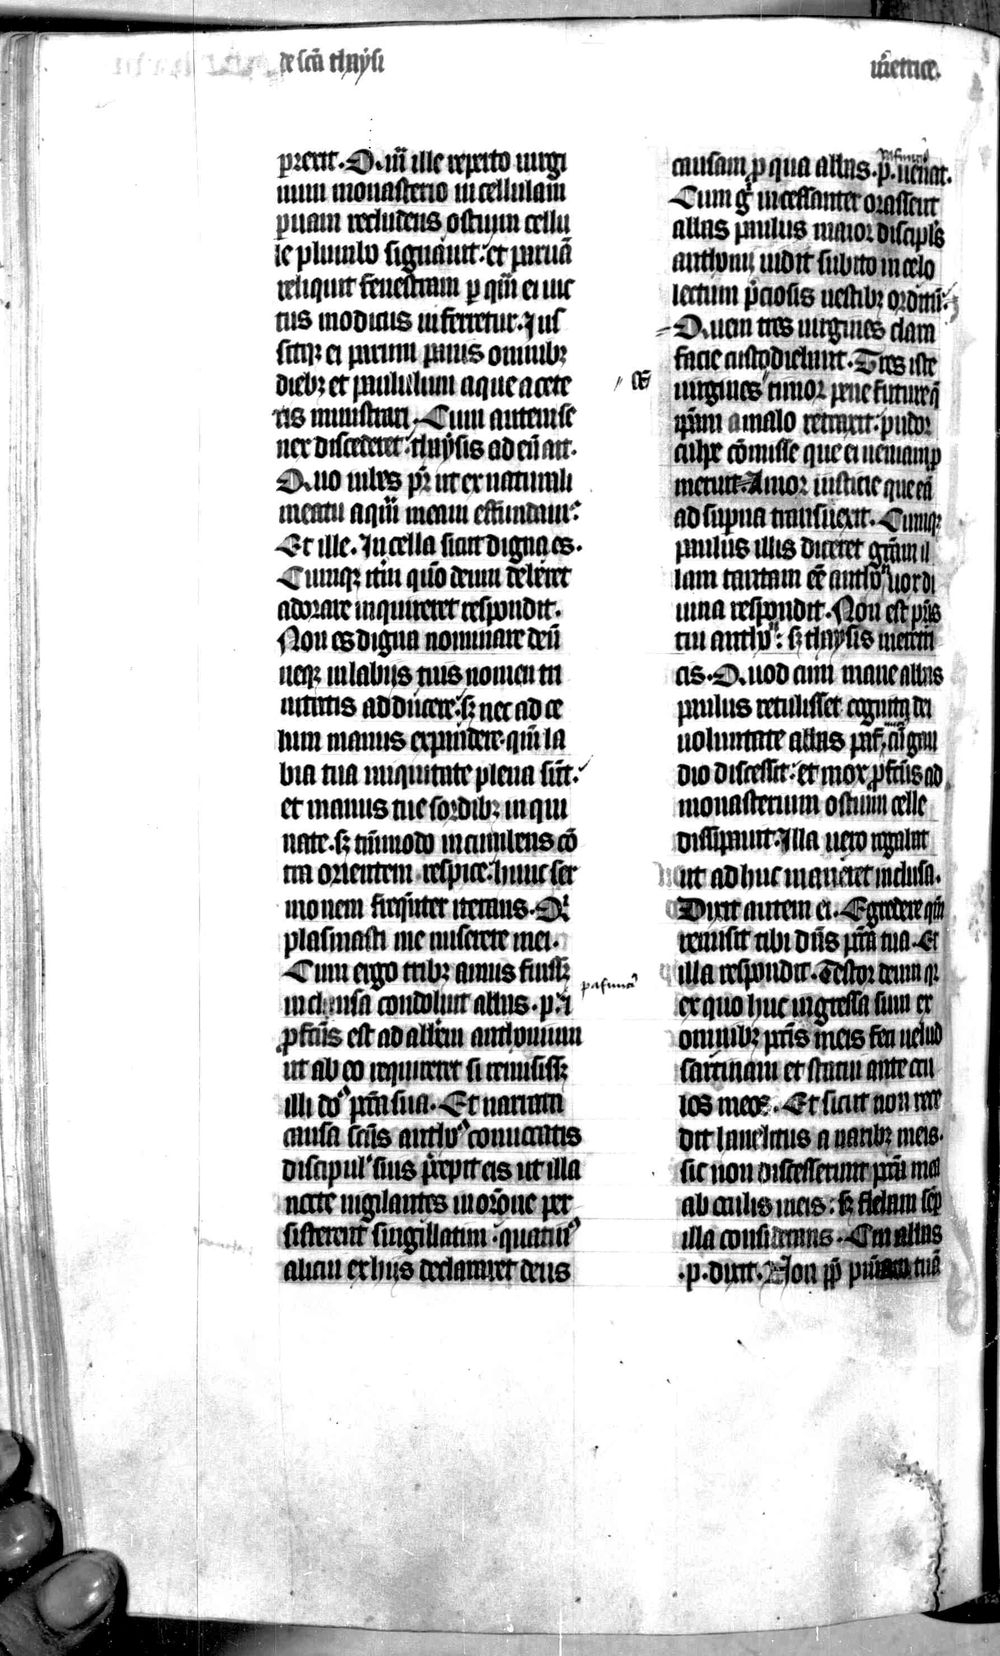 de scā thaysi
m̄etrice.
prexit. Quē ille reperto uirgi
num monasterio in cellulam
paruam recludens ostium cellu
le plumbo signauit. et paruā
reliquit fenestram p quā ei uic
tus modicus inferretur. Jus
sitqz ei parum panis omnibz
diebz et paululum aque a cete
ris ministrari. Cum autem se
nex discederet. thaysis ad eū ait.
Quo iubes pr̄ ut ex naturali
meatu aquā meam effundam?
Et ille. In cella sicut digna es.
Cumqz itm̄ quō deum deberet
adorare inquireret respondit.
Non es digna nominare deū
neqz in labijs tuis nomen tri
nitatis adducere. sz nec ad ce
lum manus expandere. qm̄ la
bia tua iniquitate plena sūt.
et manus tue sordibz inqui
nate. sz tm̄modo incumbens cō
tra orientem respice. hunc ser
monem frequēter iterans. Qi
plasmasti me miserere mei.
Cum ergo tribz annis fuissz
inclusa condoluit abbas .p. i
pafunciꝰ
pfectus est ad abbem anthonium
ut ab eo requireret si remisissz
illi dn̄s pctā sua. Et narrata
causa scūs anthoꝰ conuocatis
discipulꝰ suis p̄cepit eis ut illa
nocte uigilantes in orōne per
sisterent singillatim. quatinꝰ
alicui ex hijs declararet deus
pafunciꝰ
causam p qua abbas .p. uenat.
Cum gͦ incessanter orassent
abbas paulus maior discipls
anthonij uidit subito in celo
lectum p̄ciosis uestibz ornatū.
Quem tres uirgines clara
facie custodiebant. Tres iste
eē
uirgines timor pene future q̄
ipam a malo retraxit. pudor
culpe cōmisse que ei ueniam p
meruit. Amor iusticie que eā
ad supna transuexit. Cumqz
paulus illis diceret grām il
lam tantam eē anthoꝰ uox di
uina respondit. Non est pris
tui anthoꝰ. sz thaysis meretri
cis. Quod cum mane abbas
paulus retulisset cognita dei
uoluntate abbas paf. cū gau
dio discessit. et mox pfectus ad
monasterium ostium celle
dissipauit. Illa uero rogabat
ut adhuc maneret inclusa.
Dixit autem ei. Egredere qm̄
remisit tibi dn̄s pctā tua. Et
illa respondit. Testor deum qz
ex quo huc ingressa sum ex
omnibz pctīs meis feci uelud
sarcinam et statui ante ocu
los meos. Et sicut non rece
dit hanelitus a naribz meis.
sic non discesserunt pctā mea
ab oculis meis. sz flebam sēp
illa considerans. Cui abbas
.p. dixit. Non pp̄ pnīam tuā